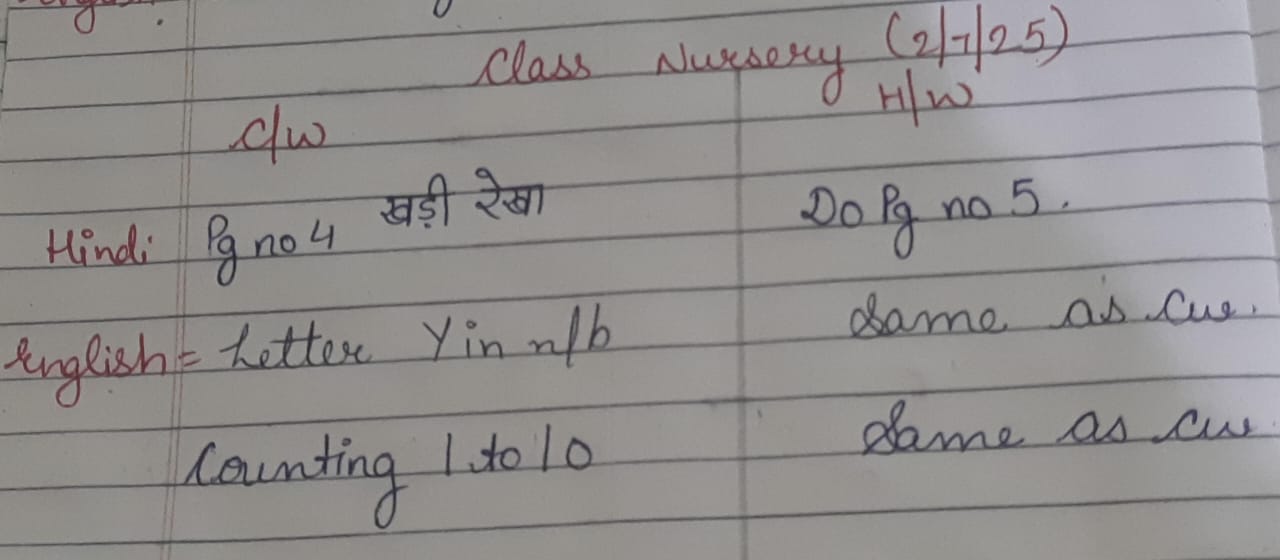 Class Nursery (2/7/25)
C/W H/W
Hindi Pg no 4 खड़ी रेखा Do Pg no 5.
English = Letter Y in n/b Same as cw.
Counting 1 to 10 Same as cw